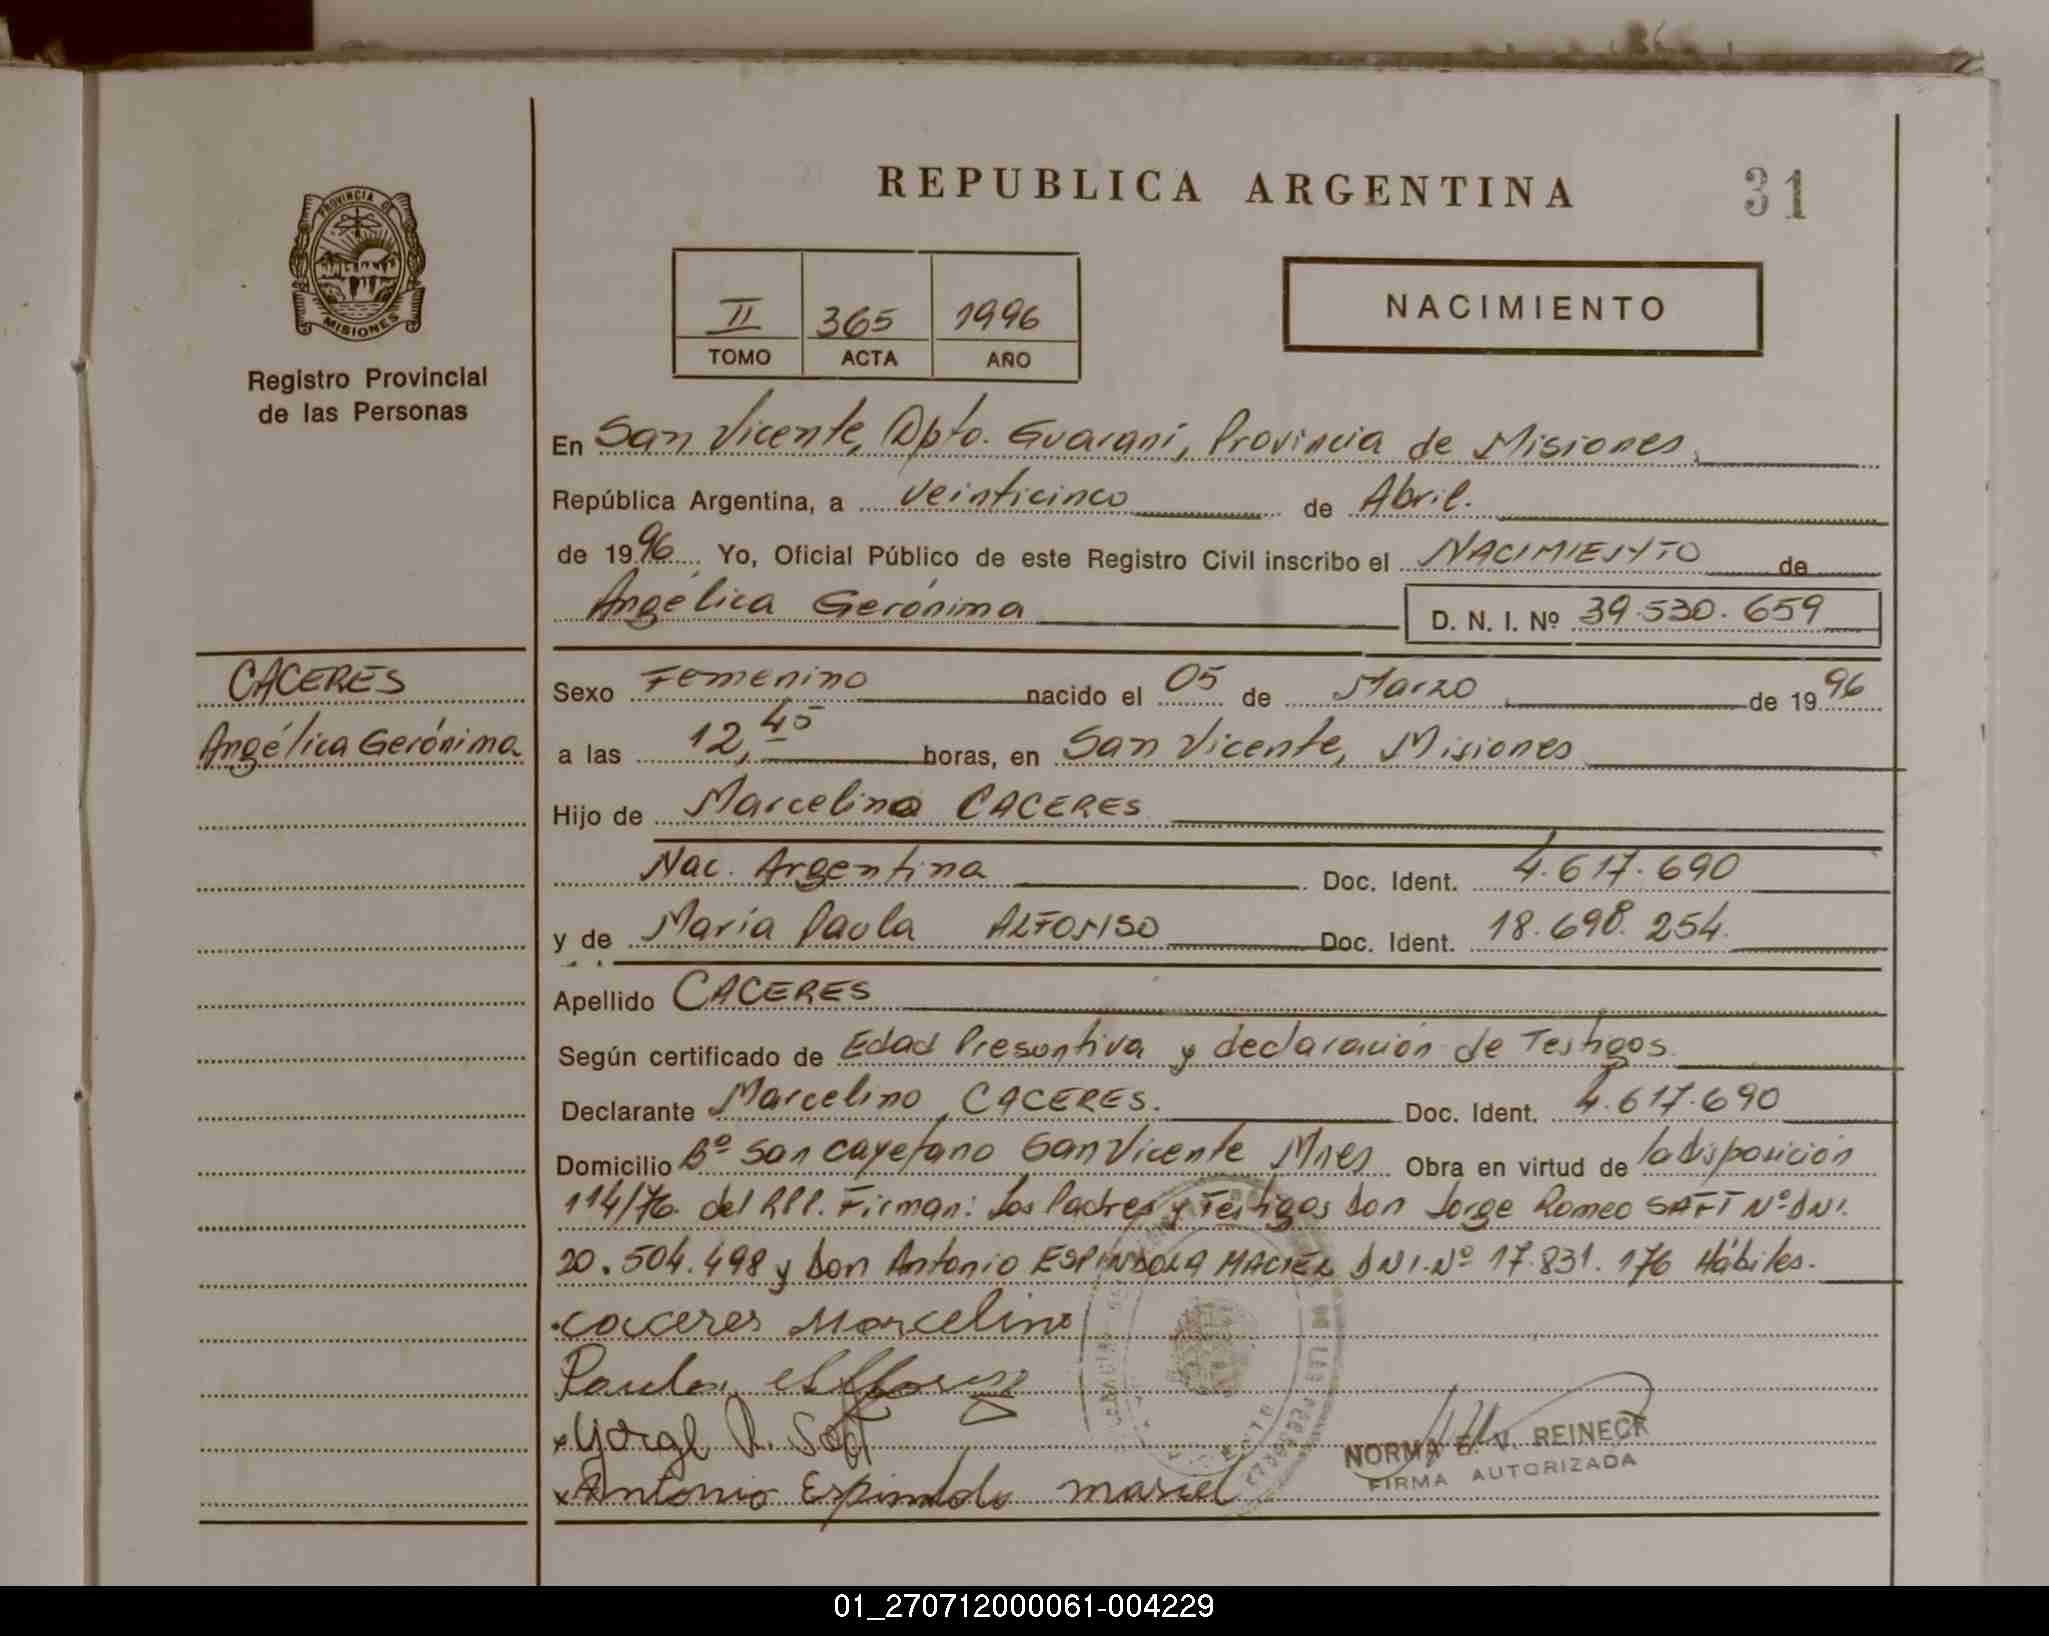 REPUBLICA ARGENTINA
31
PROVINCIA DE
MISIONES
Registro Provincial
de las Personas
II 365 1996
TOMO ACTA AÑO
NACIMIENTO
En San Vicente, Dpto. Guaraní, Provincia de Misiones
República Argentina, a veinticinco de Abril.
de 1996, Yo, Oficial Público de este Registro Civil inscribo el NACIMIENTO de
Angélica Gerónima D. N. I. Nº 39.530.659
CACERES
Angélica Gerónima
Sexo Femenino nacido el 05 de Marzo de 1996
a las 12,45 horas, en San Vicente, Misiones
Hijo de Marcelino CACERES
Nac. Argentina Doc. Ident. 4.617.690
y de María Paula ALFONSO Doc. Ident. 18.698.254
Apellido CACERES
Según certificado de Edad Presuntiva y declaración de Testigos
Declarante Marcelino, CACERES. Doc. Ident. 4.617.690
Domicilio Bº San Cayetano San Vicente Mnes Obra en virtud de la disposición
114/76 del RPP. Firman: Los Padres y Testigos Don Jorge Romeo SAFT Nº DNI.
20.504.498 y Don Antonio ESPINDOLA MACIEL DNI.Nº 17.831.176 Hábiles.
Caceres Marcelino
Paula Alfonso
Yorge R. Saft
Antonio Espindola Masiel
NORMA E. V. REINECK
FIRMA AUTORIZADA
01_270712000061-004229